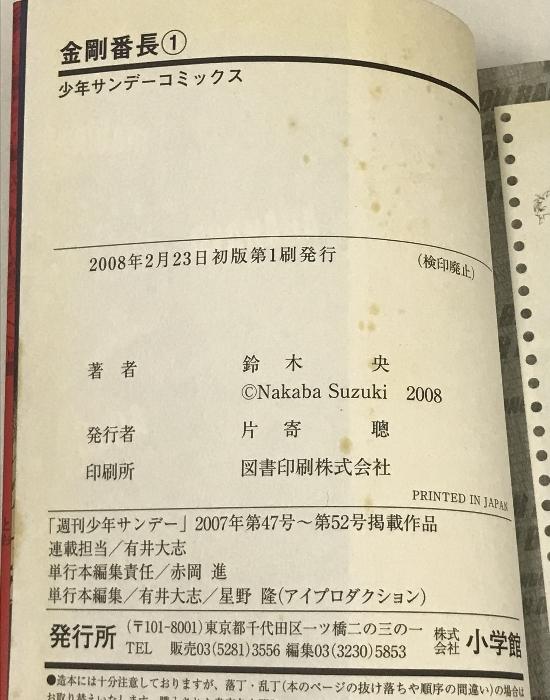 金剛番長①
少年サンデーコミックス
2008年2月23日初版第1刷発行
(検印廃止)
著者 鈴木 央
©Nakaba Suzuki 2008
発行者 片寄 聰
印刷所 図書印刷株式会社
PRINTED IN JAPAN
「週刊少年サンデー」2007年第47号～第52号掲載作品
連載担当/有井大志
単行本編集責任/赤岡 進
単行本編集/有井大志/星野 隆(アイプロダクション)
発行所 (〒101-8001)東京都千代田区一ツ橋二の三の一 株式会社 小学館
TEL 販売03(5281)3556 編集03(3230)5853
●造本には十分注意しておりますが、落丁・乱丁(本のページの抜け落ちや順序の間違い)の場合は
お取り替えいたします。